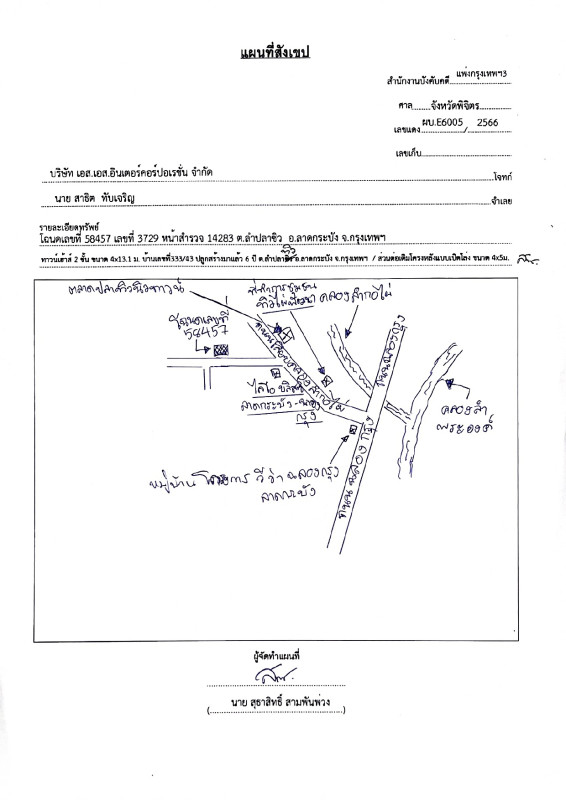 แผนที่สังเขป
สำนักงานบังคับคดี แพ่งกรุงเทพฯ3
ศาล จังหวัดพิจิตร
เลขแดง ผบ.E6005 / 2566
เลขเก็บ
บริษัท เอส.เอส.อินเตอร์คอร์ปอเรชั่น จำกัด โจทก์
นาย สาธิต ทับเจริญ จำเลย
รายละเอียดทรัพย์
โฉนดเลขที่ 58457 เลขที่ 3729 หน้าสำรวจ 14283 ต.ลำปลาซิว อ.ลาดกระบัง จ.กรุงเทพฯ
ทาวน์เฮ้าส์ 2 ชั้น ขนาด 4x13.1 ม. บ้านเลขที่333/43 ปลูกสร้างมาแล้ว 6 ปี ต.ลำปลาทิว อ.ลาดกระบัง จ.กรุงเทพฯ / ส่วนต่อเติมโครงหลังแบบเปิดโล่ง ขนาด 4x5ม.
คลองลำกอไผ่
โฉนดเลขที่
58457
ถนนเลียบคลองลำกอไผ่
ถนนฉลองกรุง
ลาดกระบัง-ฉลอง
กรุง
คลองลำ
หมู่บ้าน โครงการ วีว่า ฉลองกรุง
ลาดกระบัง
ถนนฉลองกรุง
ผู้จัดทำแผนที่
นาย สุธาสิทธิ์ สามพันพ่วง